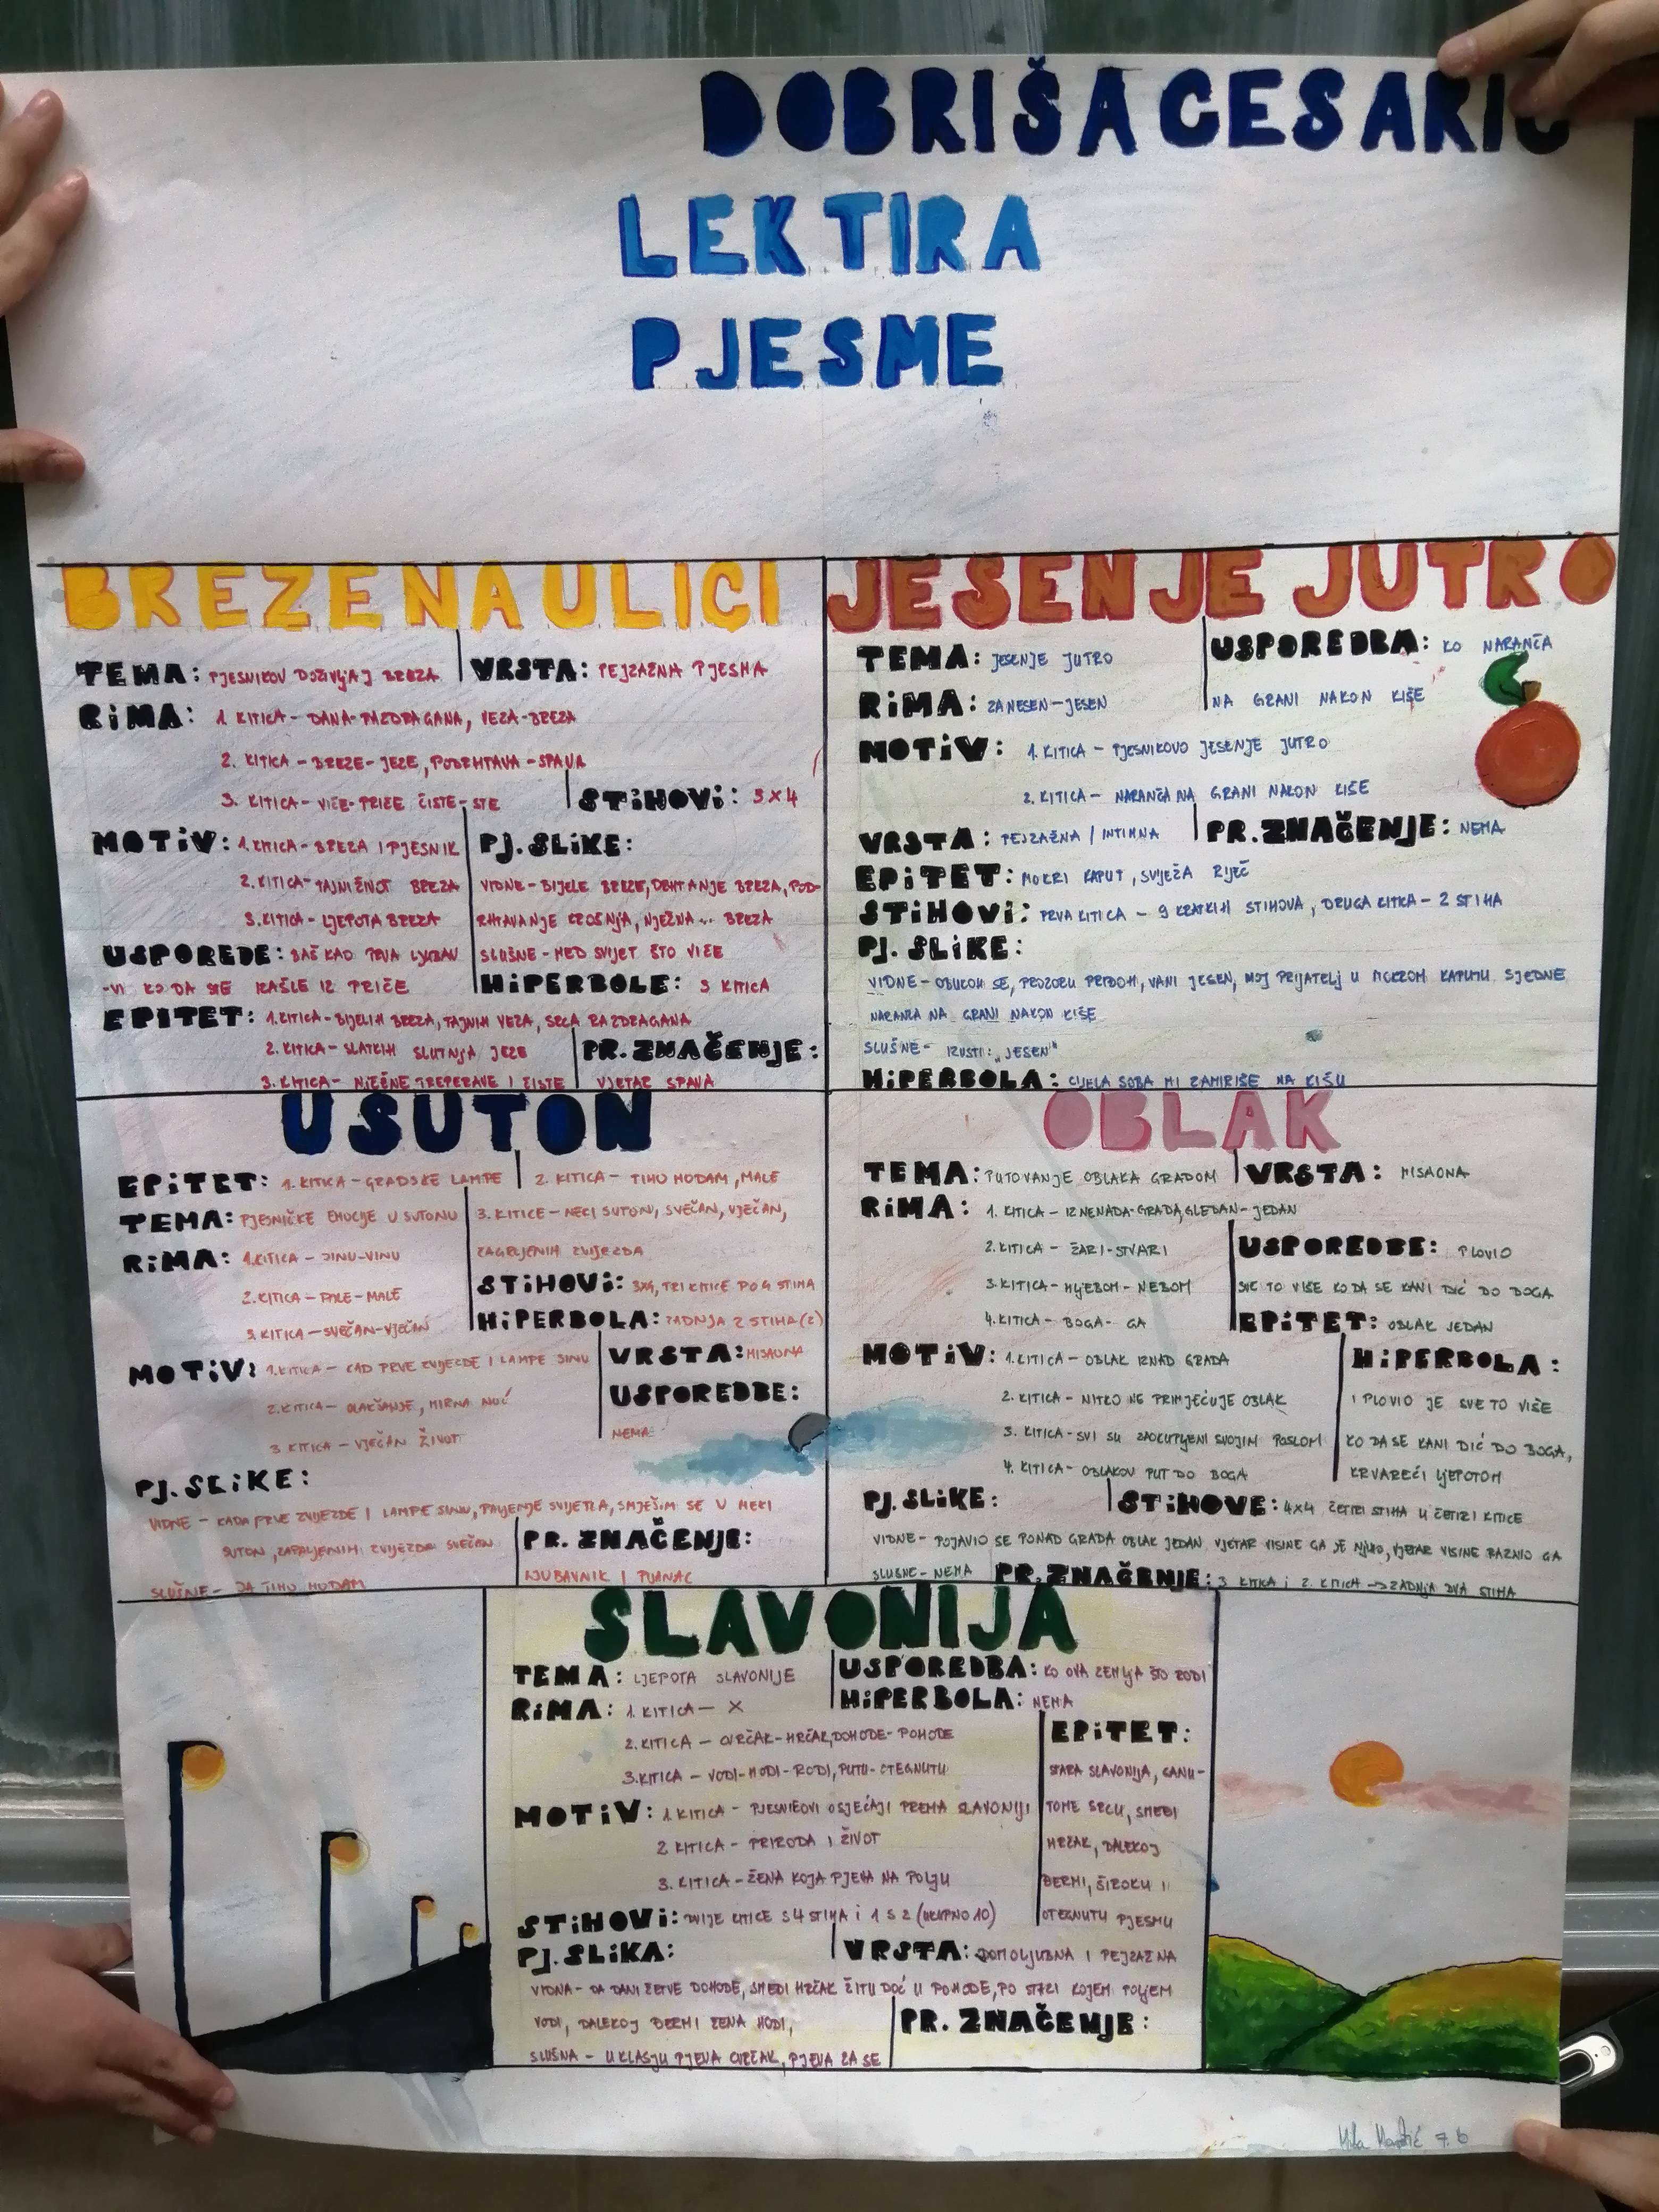 DOBRIŠA CESARIĆ
LEKTIRA
PJESME
BREZE NA ULICI
TEMA: PJESNIKOV DOŽIVLJAJ BREZA
VRSTA: PEJZAŽNA PJESMA
RIMA: 1. KITICA - DANA-RAZDRAGANA, VEZA-BREZA
2. KITICA - BREZE-JEZE, PODRHTAVA-SPAVA
3. KITICA - VIČE-PRIČE ČISTE-STE
STIHOVI: 3X4
MOTIV: 1. KITICA - BREZA I PJESNIK
2. KITICA - TAJNI ŽIVOT BREZA
3. KITICA - LJEPOTA BREZA
PJ. SLIKE:
VIDNE - BIJELE BREZE, DRHTANJE BREZA, POD-
RHTAVANJE KROŠNJA, NJEŽNA... BREZA
SLUŠNE - MED SVIJET ŠTO VIČE
USPOREDE: BAŠ KAO PRVA LJUBAV
-VI KO DA STE IZAŠLE IZ PRIČE
HIPERBOLE: 3 KITICA
EPITET: 1. KITICA - BIJELIH BREZA, TAJNIH VEZA, SRCA RAZDRAGANA
2. KITICA - SLATKIH SLUTNJA JEZE
3. KITICA - NJEŽNE TREPERAVE I ČISTE
PR. ZNAČENJE:
VJETAR SPAVA
JESENJE JUTRO
TEMA: JESENJE JUTRO
USPOREDBA: KO NARANČA
NA GRANI NAKON KIŠE
RIMA: ZANESEN-JESEN
MOTIV: 1. KITICA - PJESNIKOVO JESENJE JUTRO
2. KITICA - NARANČA NA GRANI NAKON KIŠE
VRSTA: PEJZAŽNA / INTIMNA
PR. ZNAČENJE: NEMA
EPITET: MOKRI KAPUT, SVJEŽA RIJEČ
STIHOVI: PRVA KITICA - 9 KRATKIH STIHOVA, DRUGA KITICA - 2 STIHA
PJ. SLIKE:
VIDNE - OBUKOH SE, PROZORU PRIĐOH, VANI JESEN, MOJ PRIJATELJ U MOKROM KAPUTU SJEDNE
NARANČA NA GRANI NAKON KIŠE
SLUŠNE - IZUSTI: "JESEN"
HIPERBOLA: CIJELA SOBA MI ZAMIRIŠE NA KIŠU
U SUTON
EPITET: 1. KITICA - GRADSKE LAMPE
2. KITICA - TIHO HODAM, MALE
3. KITICE - NEKI SUTON, SVEČAN, VJEČAN,
ZAGRLJENIH ZVIJEZDA
TEMA: PJESNIČKE EMOCIJE U SUTONU
RIMA: 1. KITICA - SINU-VINU
2. KITICA - PALE-MALE
3. KITICA - SVEČAN-VJEČAN
STIHOVI: 3X4, TRI KITICE PO 4 STIHA
HIPERBOLA: ZADNJA 2 STIHA (2)
MOTIV: 1. KITICA - KAD PRVE ZVIJEZDE I LAMPE SINU
2. KITICA - OLAKŠANJE, MIRNA NOĆ
3 KITICA - VJEČAN ŽIVOT
VRSTA: MISAONA
USPOREDBE:
NEMA
PJ. SLIKE:
VIDNE - KADA PRVE ZVIJEZDE I LAMPE SINU, PALJENJE SVIJETLA, SMJEŠIM SE U NEKI
SUTON, ZAPALJENIH ZVIJEZDA SVEČAN
SLUŠNE - JA TIHO HODAM
PR. ZNAČENJE:
LJUBAVNIK I PIJANAC
OBLAK
TEMA: PUTOVANJE OBLAKA GRADOM
VRSTA: MISAONA
RIMA: 1. KITICA - IZNENADA-GRADA, GLEDAN-JEDAN
2. KITICA - ŽARI-STVARI
3. KITICA - HLJEBOM-NEBOM
4. KITICA - BOGA-GA
USPOREDBE: PLOVIO
SVE TO VIŠE KO DA SE KANI DIĆ DO BOGA
EPITET: OBLAK JEDAN
MOTIV: 1. KITICA - OBLAK IZNAD GRADA
2. KITICA - NITKO NE PRIMJEĆUJE OBLAK
3. KITICA - SVI SU ZAOKUPLJENI SVOJIM POSLOM
4. KITICA - OBLAKOV PUT DO BOGA
HIPERBOLA:
I PLOVIO JE SVE TO VIŠE
KO DA SE KANI DIĆ DO BOGA,
KRVAREĆI LJEPOTOM
PJ. SLIKE:
STIHOVE: 4X4 ČETIRI STIHA U ČETIRI KITICE
VIDNE - POJAVIO SE PONAD GRADA OBLAK JEDAN VJETAR VISINE GA JE NJIHO, VJETAR VISINE RAZNIO GA
SLUŠNE - NEMA
PR. ZNAČENJE: 3 KITICA i 2. KITICA -> ZADNJA DVA STIHA
SLAVONIJA
TEMA: LJEPOTA SLAVONIJE
USPOREDBA: KO OVA ZEMLJA ŠTO RODI
RIMA: 1. KITICA - X
HIPERBOLA: NEMA
2. KITICA - CVRČAK-HRČAK, DOHODE-POHODE
3. KITICA - VODI-HODI-RODI, PUTU-OTEGNUTU
EPITET:
STARA SLAVONIJA, GANU-
TOME SRCU, SMEĐI
HRČAK, DALEKOJ
BERMI, ŠIROKU I
OTEGNUTU PJESMU
MOTIV: 1 KITICA - PJESNIKOVI OSJEĆAJI PREMA SLAVONIJI
2 KITICA - PRIRODA I ŽIVOT
3. KITICA - ŽENA KOJA PJEVA NA POLJU
STIHOVI: DVIJE KITICE S 4 STIHA i 1 S 2 (UKUPNO 10)
PJ. SLIKA:
VRSTA: DOMOLJUBNA I PEJZAŽNA
VIDNA - DA DANI ŽETVE DOHODE, SMEĐI HRČAK ŽITU DOĆ U POHODE, PO STAZI KOJEM POLJEM
VODI, DALEKOJ BERMI ŽENA HODI,
SLUŠNA - U KLASJU PJEVA CVRČAK, PJEVA ZA SE
PR. ZNAČENJE:
7. b